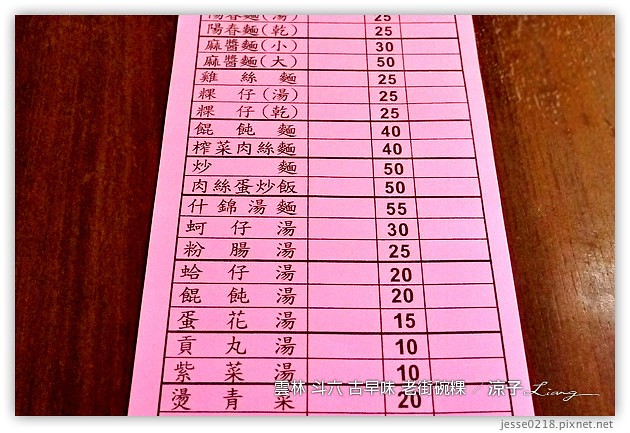 陽春麵(湯) 25
陽春麵(乾) 25
麻醬麵(小) 30
麻醬麵(大) 50
雞絲麵 25
粿仔(湯) 25
粿仔(乾) 25
餛飩麵 40
榨菜肉絲麵 40
炒麵 50
肉絲蛋炒飯 50
什錦湯麵 55
蚵仔湯 30
粉腸湯 25
蛤仔湯 20
餛飩湯 20
蛋花湯 15
貢丸湯 10
紫菜湯 10
燙青菜 20
雲林 斗六 古早味 老街碗粿 / 涼子 Liang
jesse0218.pixnet.net